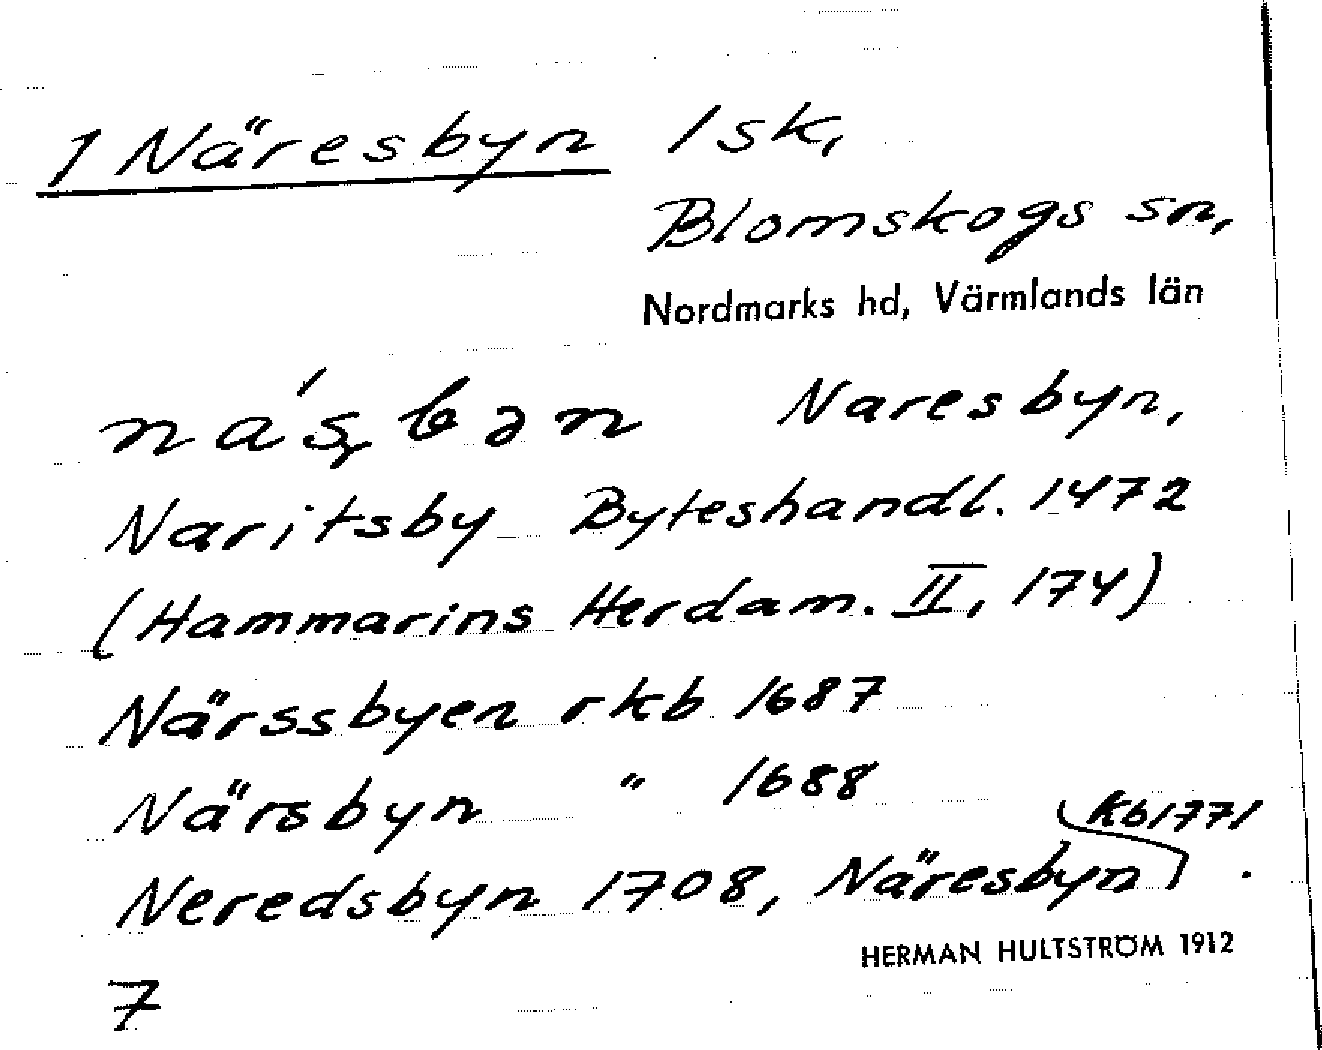 1 Näresbyn 1 sk,
Blomskogs sn,
Nordmarks hd, Värmlands län
Naresbyn,
Naritsby Byteshandl. 1472
(Hammarins Herdam. II, 174)
Närssbyen rkb 1687
Närsbyn " 1688
Neredsbyn 1708, Näresbyn kb 1771.
HERMAN HULTSTRÖM 1912
7